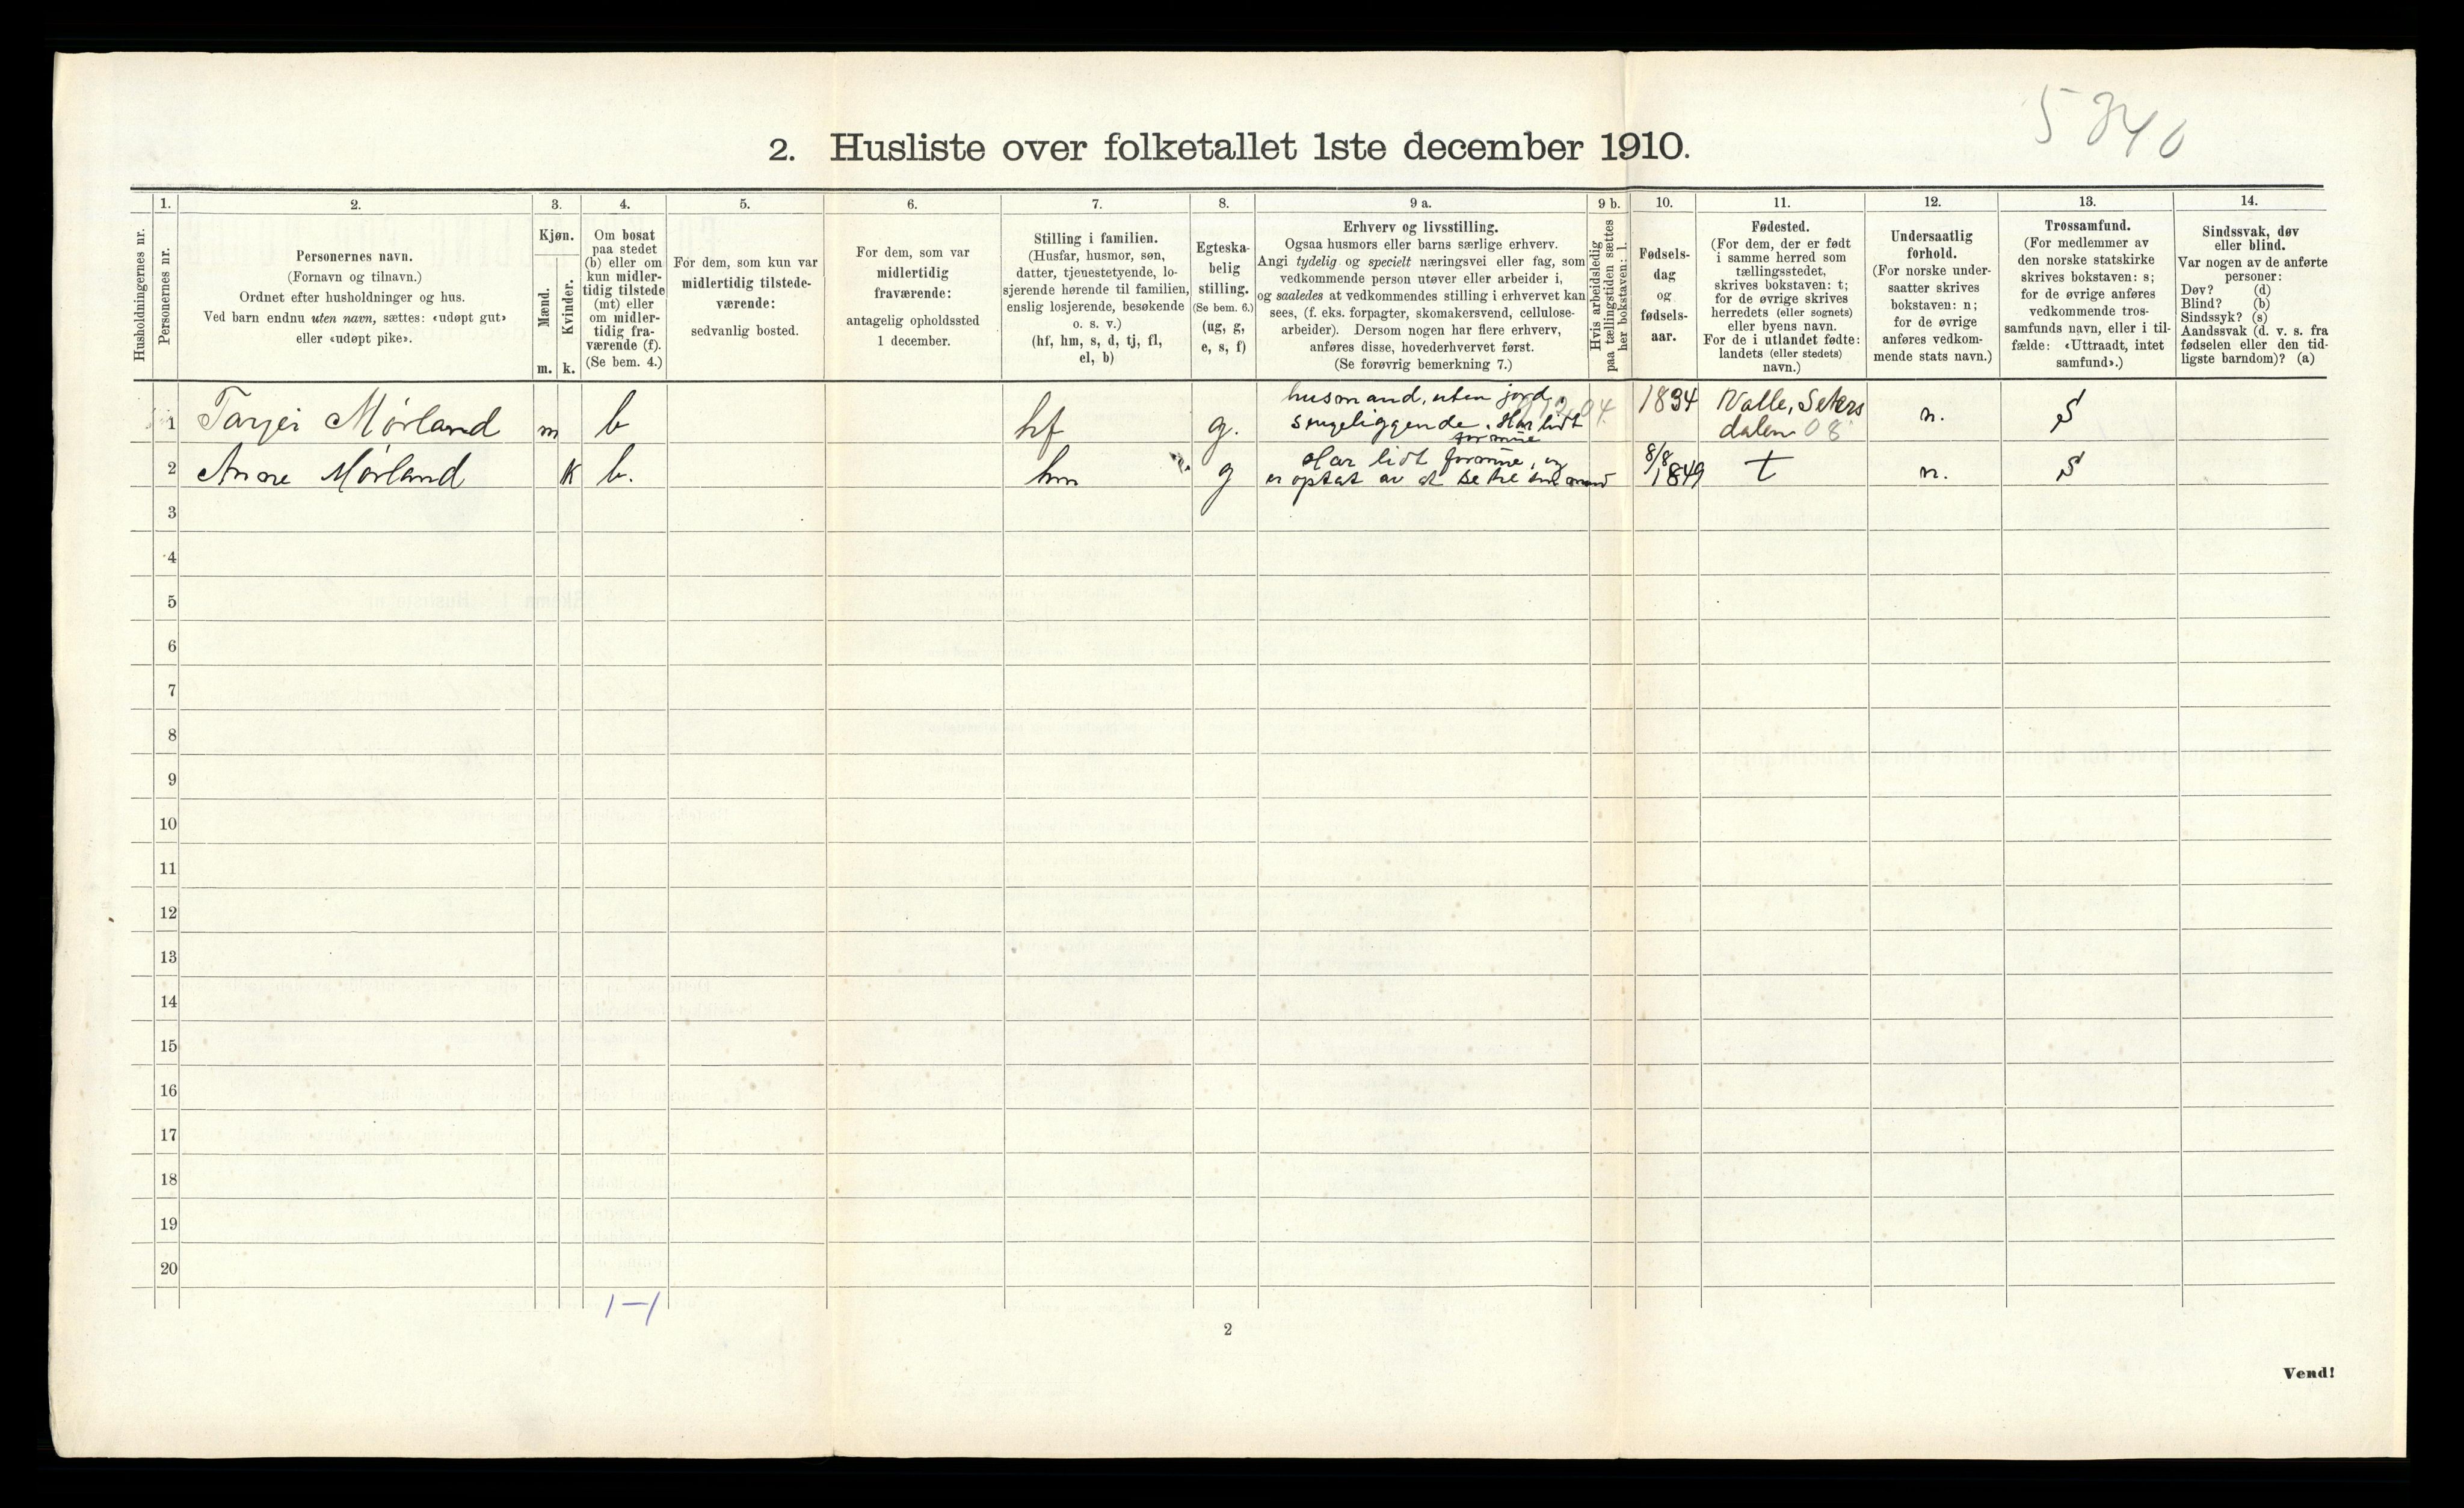 5840
2. Husliste over folketallet 1ste december 1910.
Husholdningernes nr.
1.
Personernes nr.
2.
Personernes navn.
(Fornavn og tilnavn.)
Ordnet efter husholdninger og hus.
Ved barn endnu uten navn, sættes: «udøpt gut»
eller «udøpt pike».
3.
Kjøn.
Mænd.
Kvinder.
m. k.
4.
Om bosat
paa stedet
(b) eller om
kun midler-
tidig tilstede
(mt) eller
om midler-
tidig fra-
værende (f).
(Se bem. 4.)
5.
For dem, som kun var
midlertidig tilstede-
værende:
sedvanlig bosted.
6.
For dem, som var
midlertidig
fraværende:
antagelig opholdssted
1 december.
7.
Stilling i familien.
(Husfar, husmor, søn,
datter, tjenestetyende, lo-
sjerende hørende til familien,
enslig losjerende, besøkende
o. s. v.)
(hf, hm, s, d, tj, fl,
el, b)
8.
Egteska-
belig
stilling.
(Se bem. 6.)
(ug, g,
e, s, f)
9 a.
Erhverv og livsstilling.
Ogsaa husmors eller barns særlige erhverv.
Angi tydelig og specielt næringsvei eller fag, som
vedkommende person utøver eller arbeider i,
og saaledes at vedkommendes stilling i erhvervet kan
sees, (f. eks. forpagter, skomakersvend, cellulose-
arbeider). Dersom nogen har flere erhverv,
anføres disse, hovederhvervet først.
(Se forøvrig bemerkning 7.)
9 b.
Hvis arbeidsledig
paa tællingstiden sættes
her bokstaven: l.
10.
Fødsels-
dag
og
fødsels-
aar.
11.
Fødested.
(For dem, der er født
i samme herred som
tællingsstedet,
skrives bokstaven: t;
for de øvrige skrives
herredets (eller sognets)
eller byens navn.
For de i utlandet fødte:
landets (eller stedets)
navn.)
12.
Undersaatlig
forhold.
(For norske under-
saatter skrives
bokstaven: n;
for de øvrige
anføres vedkom-
mende stats navn.)
13.
Trossamfund.
(For medlemmer av
den norske statskirke
skrives bokstaven: s;
for de øvrige anføres
vedkommende tros-
samfunds navn, eller i til-
fælde: «Uttraadt, intet
samfund».)
14.
Sindssvak, døv
eller blind.
Var nogen av de anførte
personer:
Døv? (d)
Blind? (b)
Sindssyk? (s)
Aandssvak (d. v. s. fra
fødselen eller den tid-
ligste barndom)? (a)
1 Tarjei Mørland m b hf g. husmand, uten jord,
sengeliggende. Har lidt
formue
1834 Valle, Seters
dalen 08 n. S
2 Anne Mørland k b. hm g Har lidt formue, og
er optat av at
8/8 1849 t n. S
3
4
5
6
7
8
9
10
11
12
13
14
15
16
17
18
19
20
1–1
2
Vend!